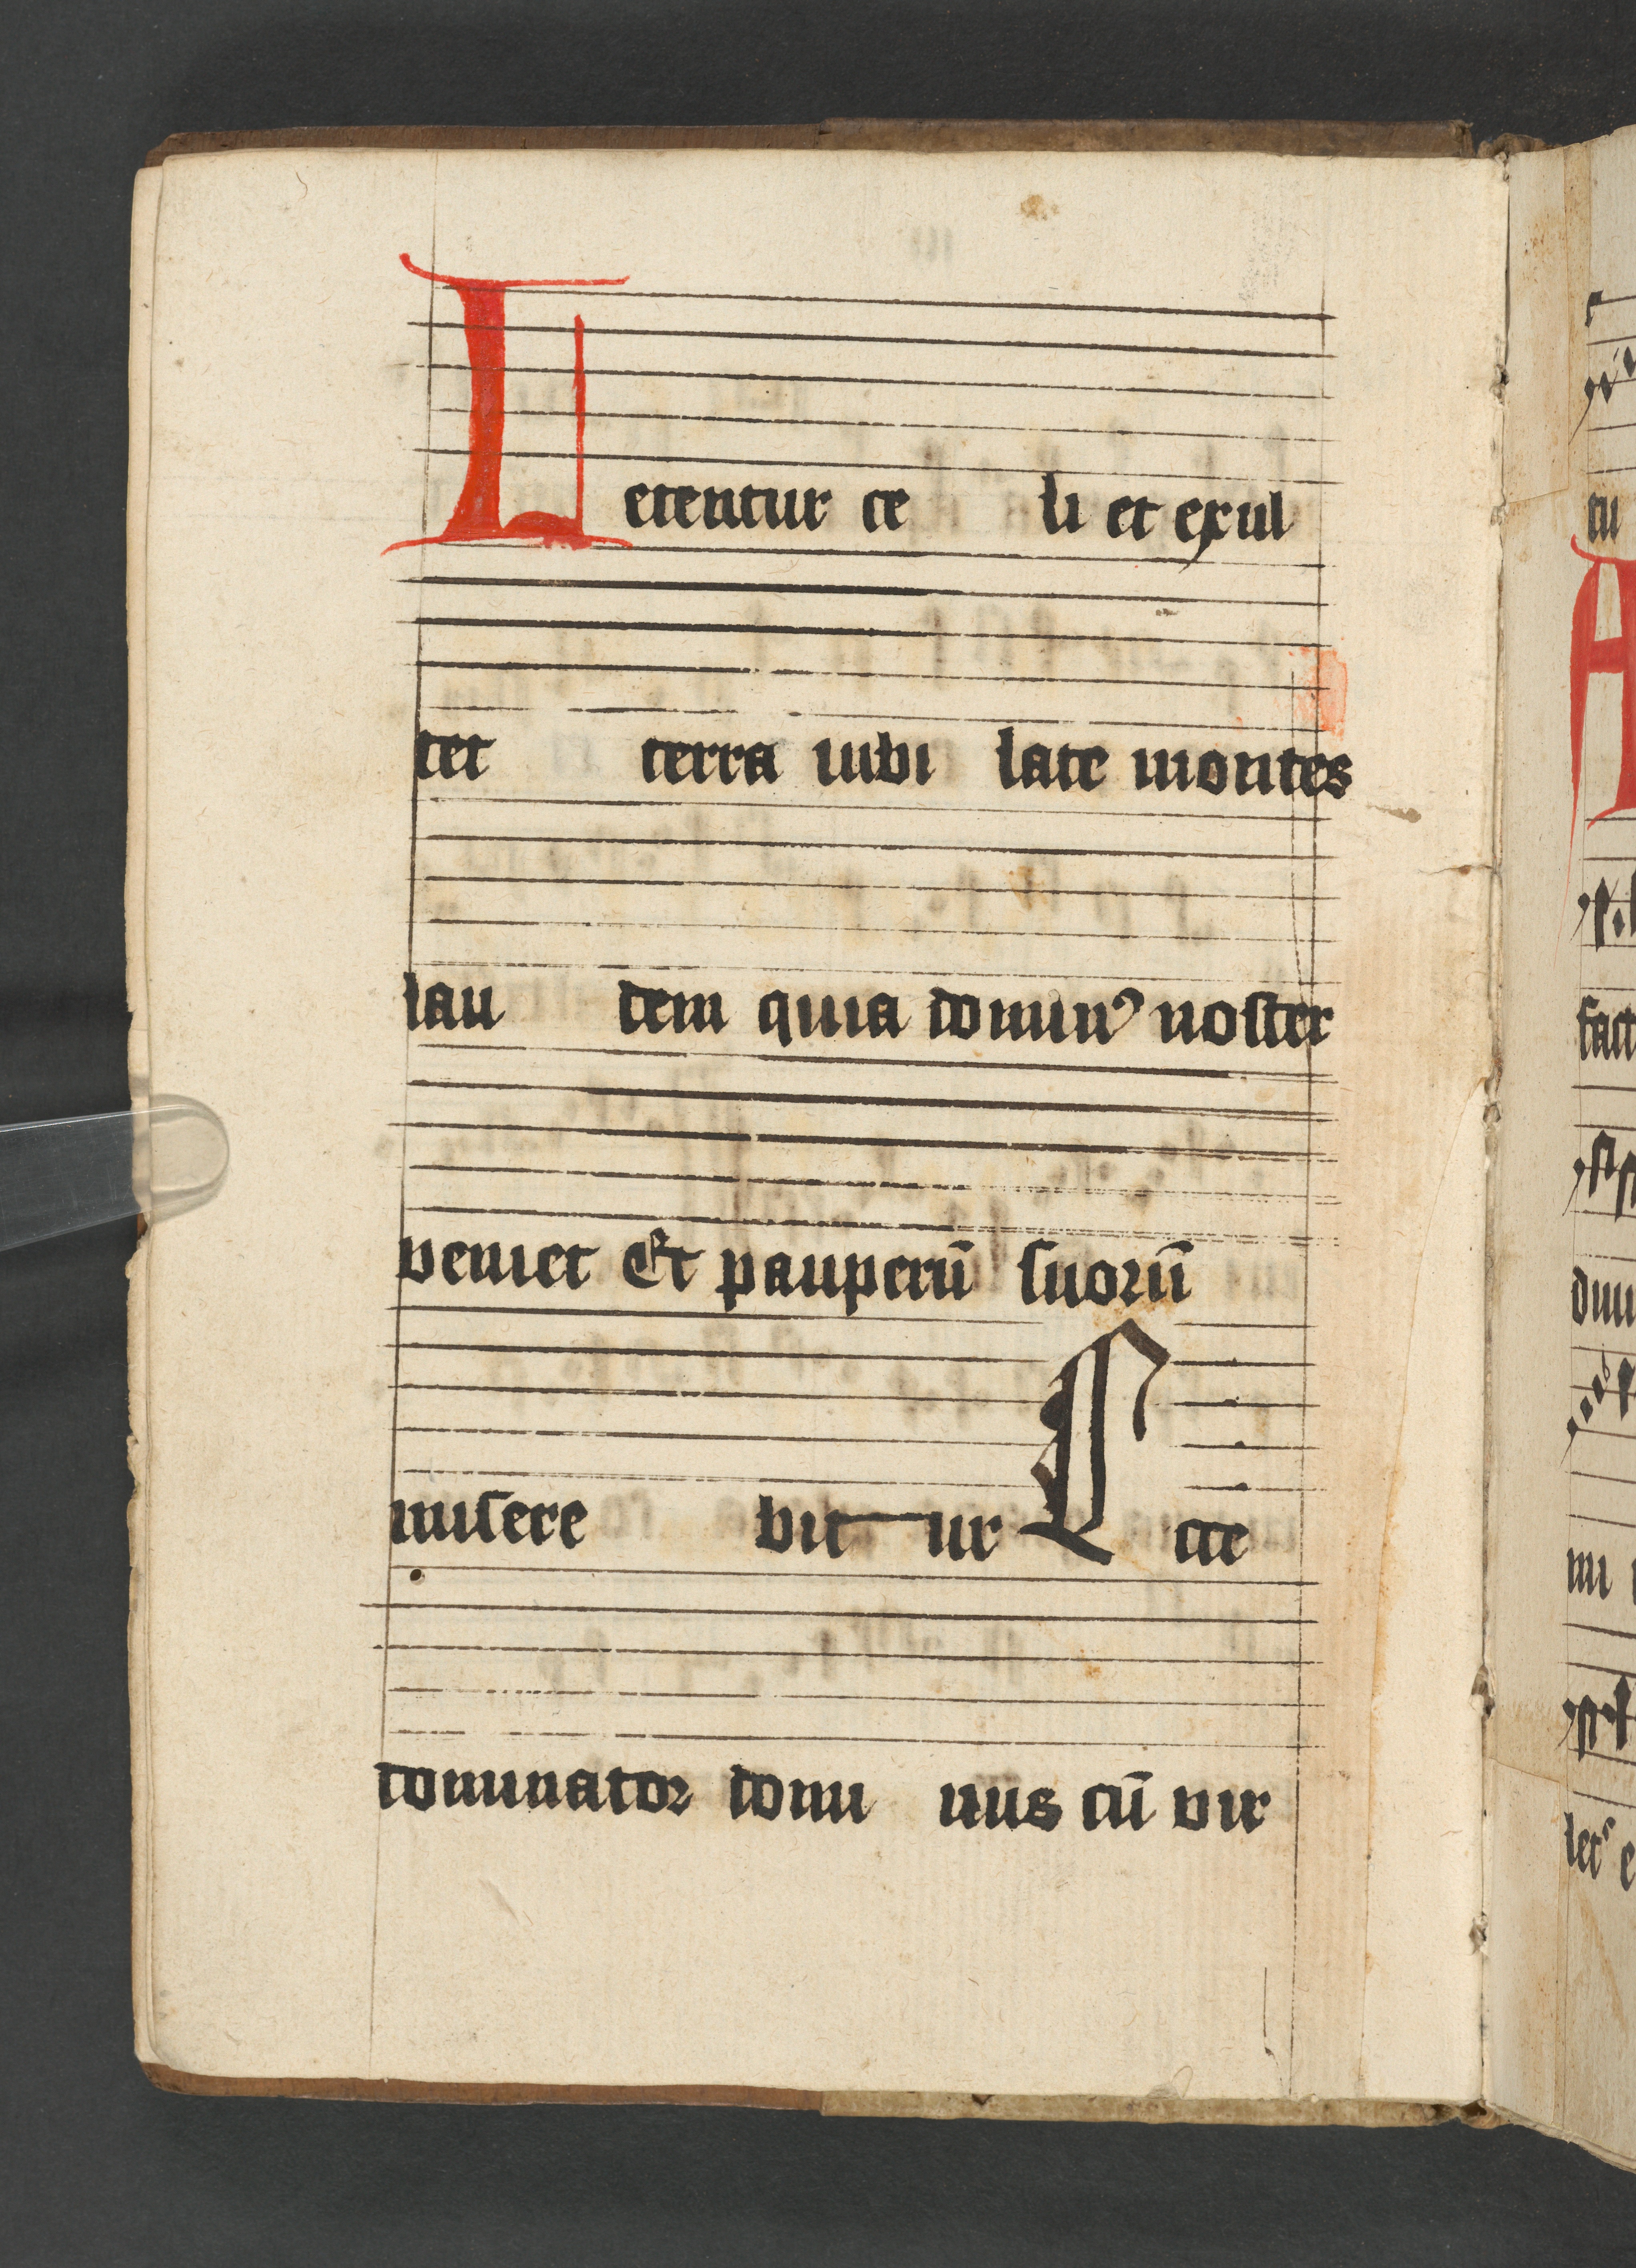 Letentur ce li et exul
tet terra iubi late montes
lau dem quia dominꝰ noster
veniet Et pauperū suorū
misere bit ur Ecce
dominator domi nus cū vir
tu
A
fact
dim
mi
let